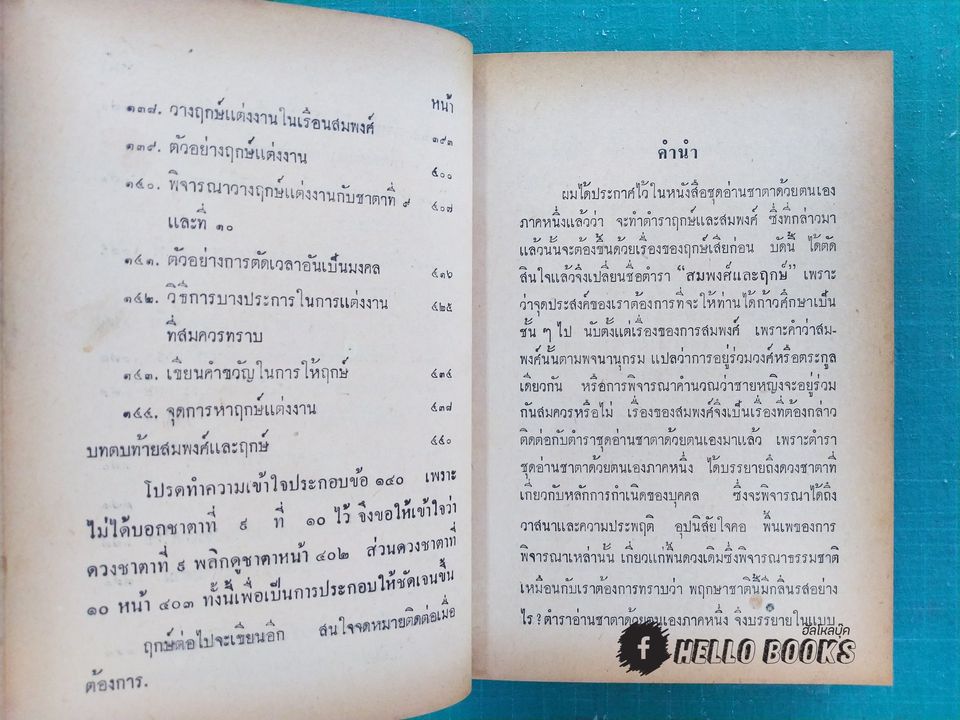 หน้า
๑๓๘. วางฤกษ์แต่งงานในเรือนสมพงศ์ ๓๙๓
๑๓๙. ตัวอย่างฤกษ์แต่งงาน ๔๐๐
๑๔๐. พิจารณาวางฤกษ์แต่งงานกับชาตาที่ ๙ ๔๐๗
และที่ ๑๐
๑๔๑. ตัวอย่างการตัดเวลาอันเป็นมงคล ๔๑๖
๑๔๒. วิธีการบางประการในการแต่งงาน ๔๒๕
ที่สมควรทราบ
๑๔๓. เขียนคำขวัญในการให้ฤกษ์ ๔๓๔
๑๔๔. จุดการหาฤกษ์แต่งงาน ๔๓๘
บทตบท้ายสมพงศ์และฤกษ์ ๔๔๐
โปรดทำความเข้าใจประกอบข้อ ๑๔๐ เพราะ
ไม่ได้บอกชาตาที่ ๙ ที่ ๑๐ ไว้ จึงขอให้เข้าใจว่า
ดวงชาตาที่ ๙ พลิกดูชาตาหน้า ๔๐๒ ส่วนดวงชาตาที่
๑๐ หน้า ๔๐๓ ทั้งนี้เพื่อเป็นการประกอบให้ชัดเจนขึ้น
ฤกษ์ต่อไปจะเขียนอีก สนใจจดหมายติดต่อเมื่อ
ต้องการ.
คำนำ
ผมได้ประกาศไว้ในหนังสือชุดอ่านชาตาด้วยตนเอง
ภาคหนึ่งแล้วว่า จะทำตำราฤกษ์และสมพงศ์ ซึ่งที่กล่าวมา
แล้วนั้นจะต้องขึ้นด้วยเรื่องของฤกษ์เสียก่อน บัดนี้ ได้ตัด
สินใจแล้วจึงเปลี่ยนชื่อตำรา “สมพงศ์และฤกษ์” เพราะ
ว่าจุดประสงค์ของเราต้องการที่จะให้ท่านได้ก้าวศึกษาเป็น
ชั้น ๆ ไป นับตั้งแต่เรื่องของการสมพงศ์ เพราะคำว่าสม-
พงศ์นั้นตามพจนานุกรม แปลว่าการอยู่ร่วมวงศ์หรือตระกูล
เดียวกัน หรือการพิจารณาคำนวณว่าชายหญิงจะอยู่ร่วม
กันสมควรหรือไม่ เรื่องของสมพงศ์จึงเป็นเรื่องที่ต้องกล่าว
ติดต่อกับตำราชุดอ่านชาตาด้วยตนเองมาแล้ว เพราะตำรา
ชุดอ่านชาตาด้วยตนเองภาคหนึ่ง ได้บรรยายถึงดวงชาตาที่
เกี่ยวกับหลักการกำเนิดของบุคคล ซึ่งจะพิจารณาได้ถึง
วาสนาและความประพฤติ อุปนิสัยใจคอ พื้นเพของการ
พิจารณาเหล่านั้น เกี่ยวแก่พื้นดวงเดิมซึ่งพิจารณาธรรมชาติ
เหมือนกับเราต้องการทราบว่า พฤกษาชาตินี้มีกลิ่นรสอย่าง
ไร? ตำราอ่านชาตาด้วยตนเองภาคหนึ่ง จึงบรรยายในแบบ
ฮัลโหลบุ๊ค
f HELLO BOOKS